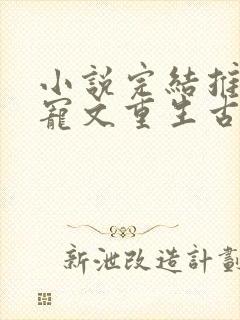 小說完結推
寵文重生古
新泄改造計劃